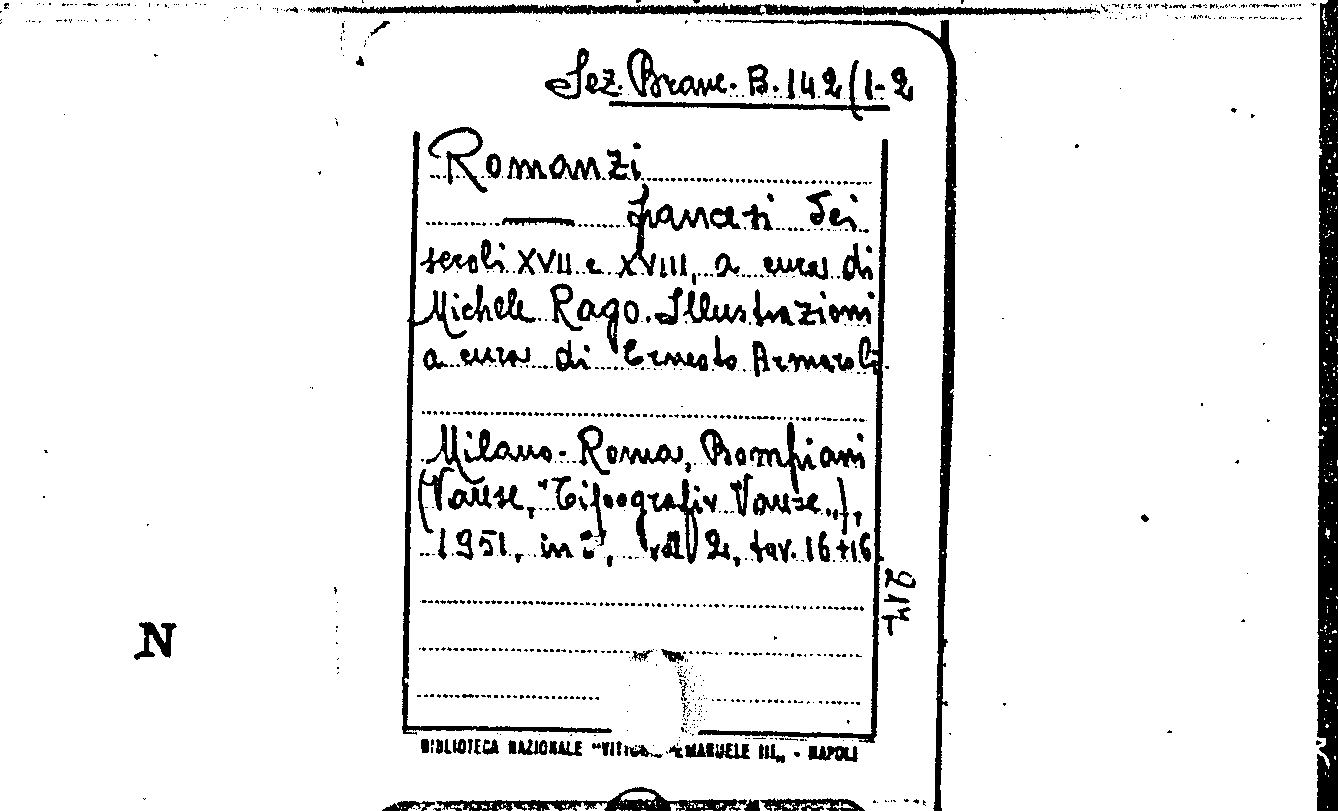 Sez. Branc. B. 142 (1-2
Romanzi
—— francesi dei
secoli XVII e XVIII, a cura di
Michele Rago. Illustrazioni
a cura di Ernesto Armaroli.
Milano-Roma, Bompiani
(Varese, "Tipografia Varese„),
1951, in 8°, vol. 2, tav. 16+16
N
BIBLIOTECA NAZIONALE "VITTORIO EMANUELE III„ - NAPOLI